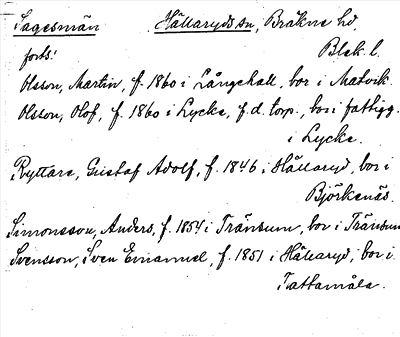 Sagesmän Hällaryds sn, Bräkne hd,
forts! Blek. l.
Olsson, Martin, f. 1860 i Långehall, bor i Matvik.
Olsson, Olof, f. 1860 i Lycke, f.d. torp., bor i fattigg.
i Lycke.
Ryttare, Gustaf Adolf, f. 1846 i Hällaryd, bor i
Björkenäs.
Simonsson, Anders, f. 1854 i Tränsum, bor i Tränsum
Svensson, Sven Emanuel, f. 1851 i Hällaryd, bor i
Tattamåla.